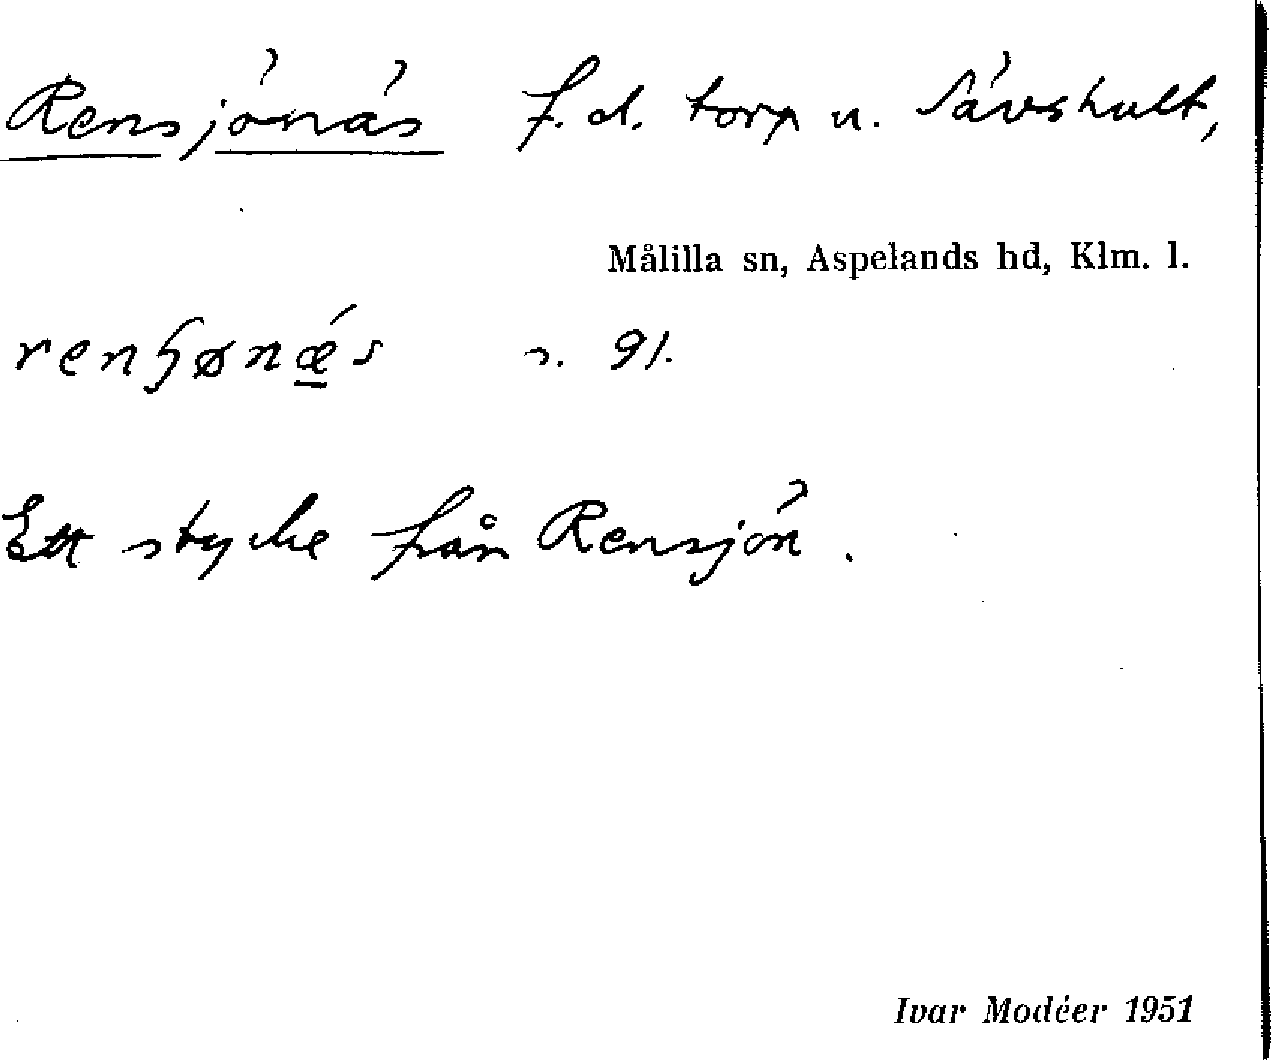 Rensjönäs f.d. torp u. Sävshult,
Målilla sn, Aspelands hd, Klm. l.
renɧønǽs s. 91.
Ett stycke från Rensjön.
Ivar Modéer 1951